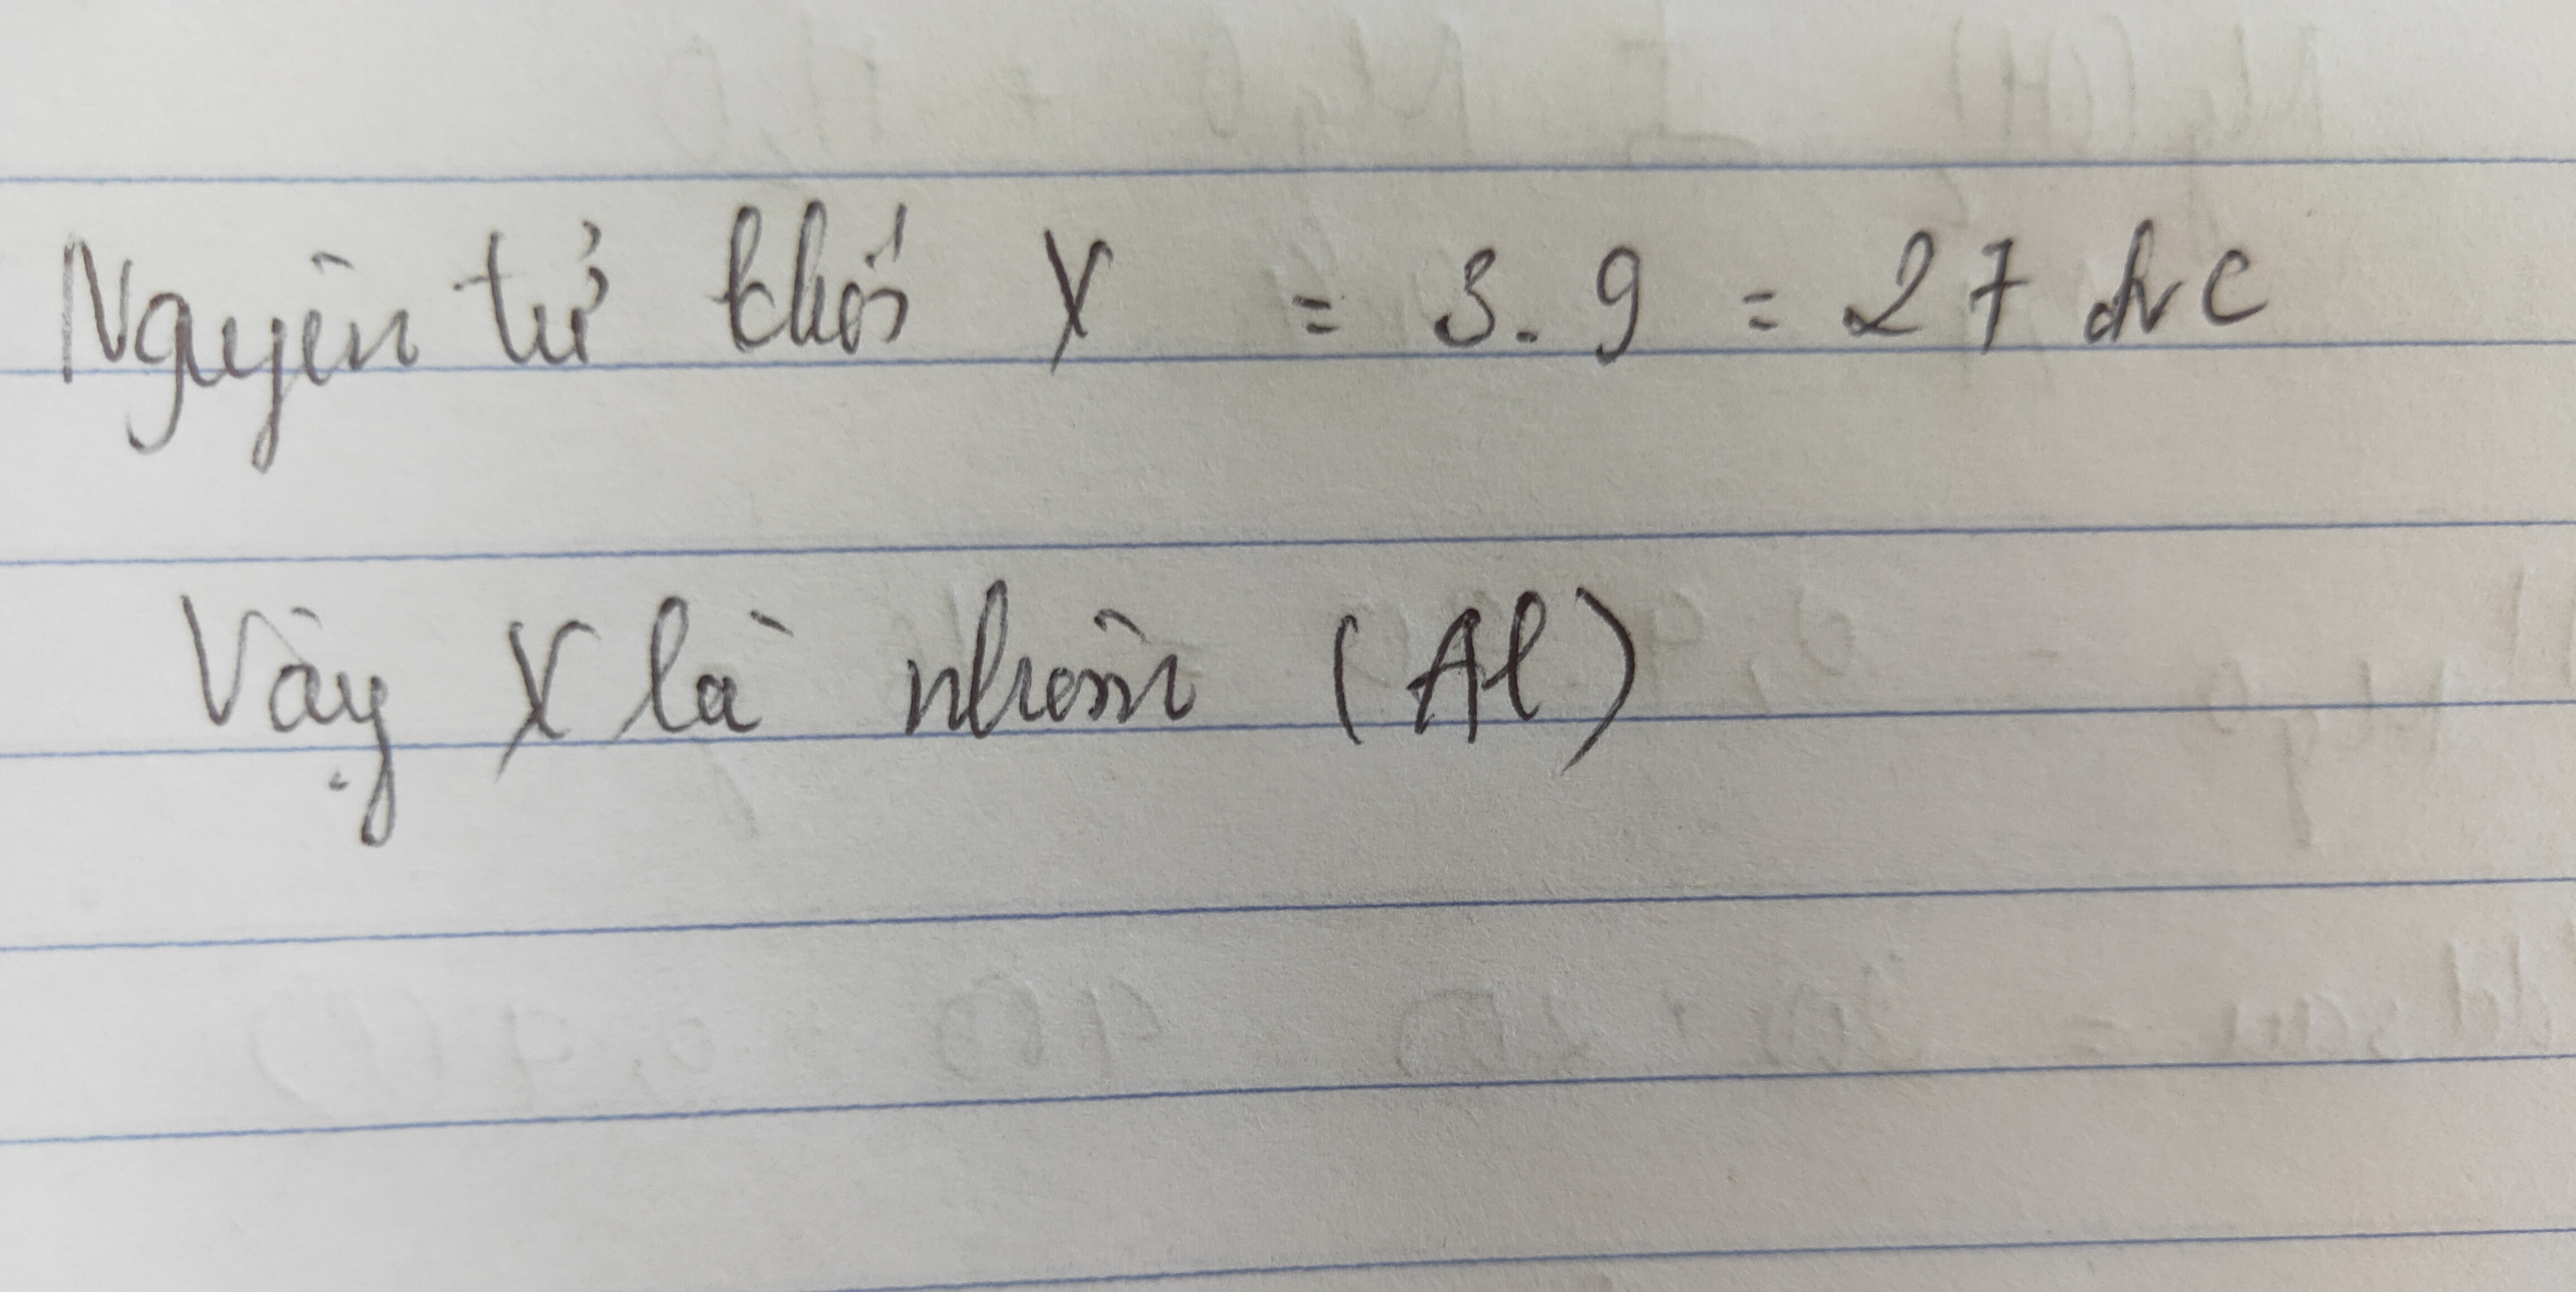 Nguyên tử khối X = 3.9 = 27 đvC
Vậy X là nhôm (Al)